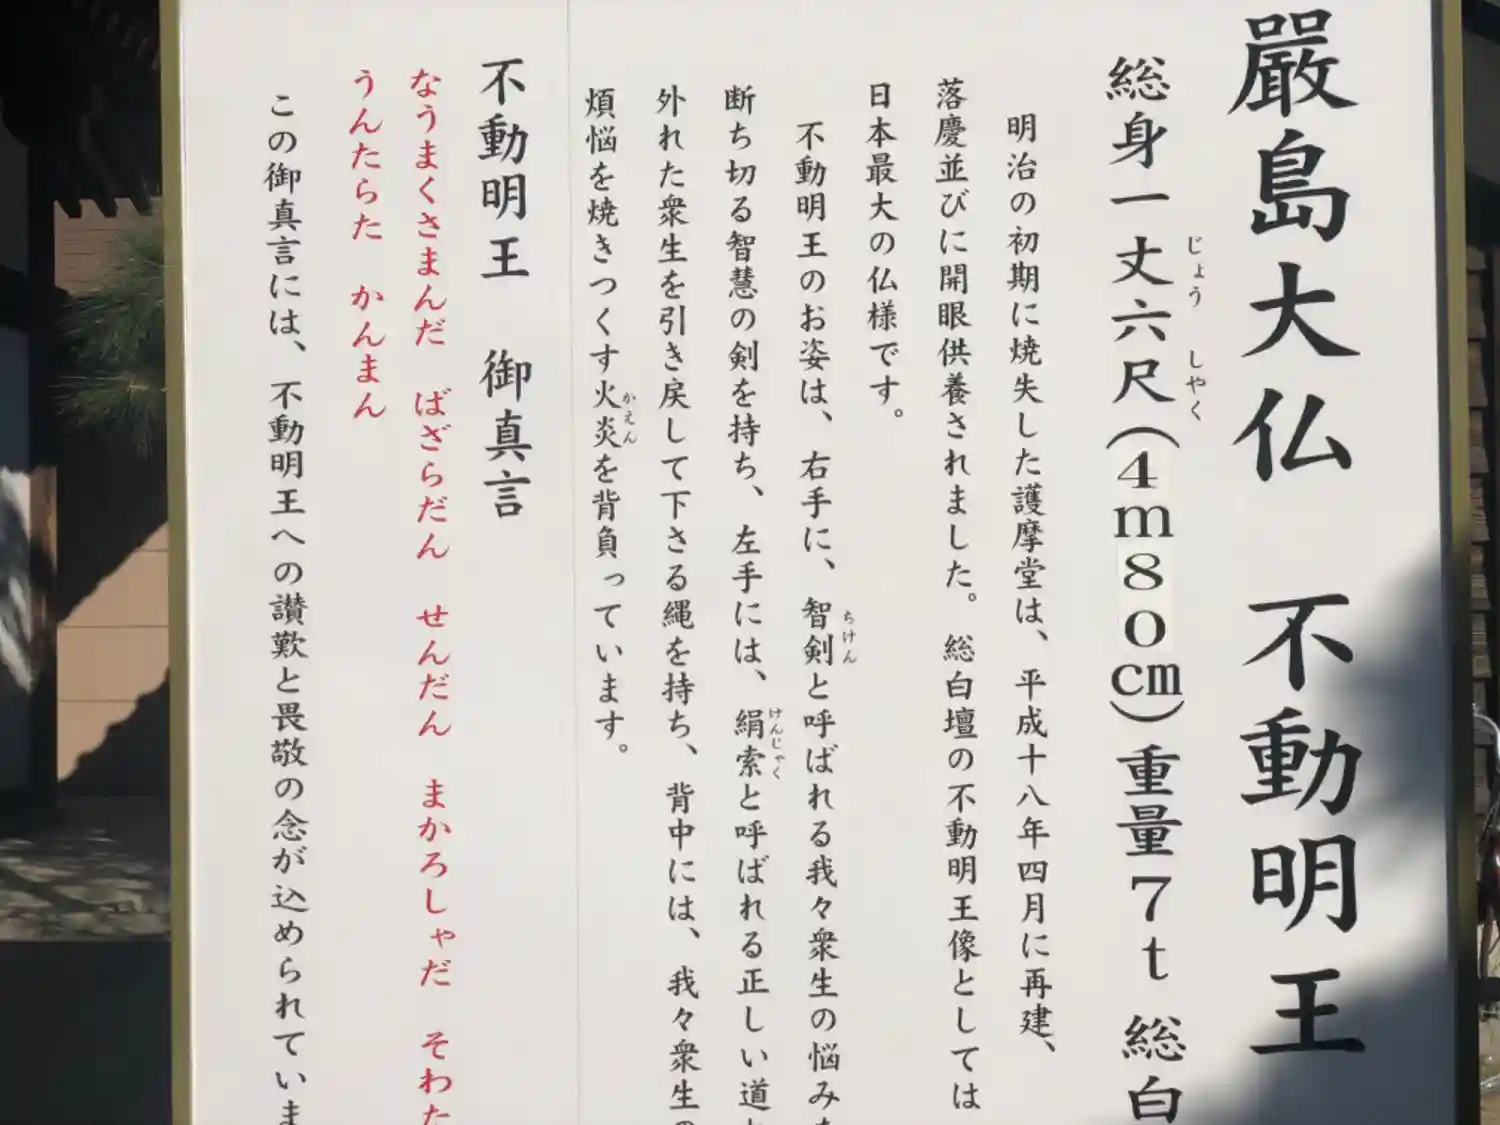 嚴島大仏　不動明王
総身一丈六尺(4m80cm)重量7t 総白
じょう しやく
明治の初期に焼失した護摩堂は、平成十八年四月に再建、
落慶並びに開眼供養されました。総白壇の不動明王像としては
日本最大の仏様です。
不動明王のお姿は、右手に、智剣と呼ばれる我々衆生の悩み
ちけん
断ち切る智慧の剣を持ち、左手には、絹索と呼ばれる正しい道
けんじゃく
外れた衆生を引き戻して下さる縄を持ち、背中には、我々衆生
煩悩を焼きつくす火炎を背負っています。
かえん
不動明王　御真言
なうまくさまんだ　ばざらだん　せんだん　まかろしゃだ　そわた
うんたらた　かんまん
この御真言には、不動明王への讃歎と畏敬の念が込められていま